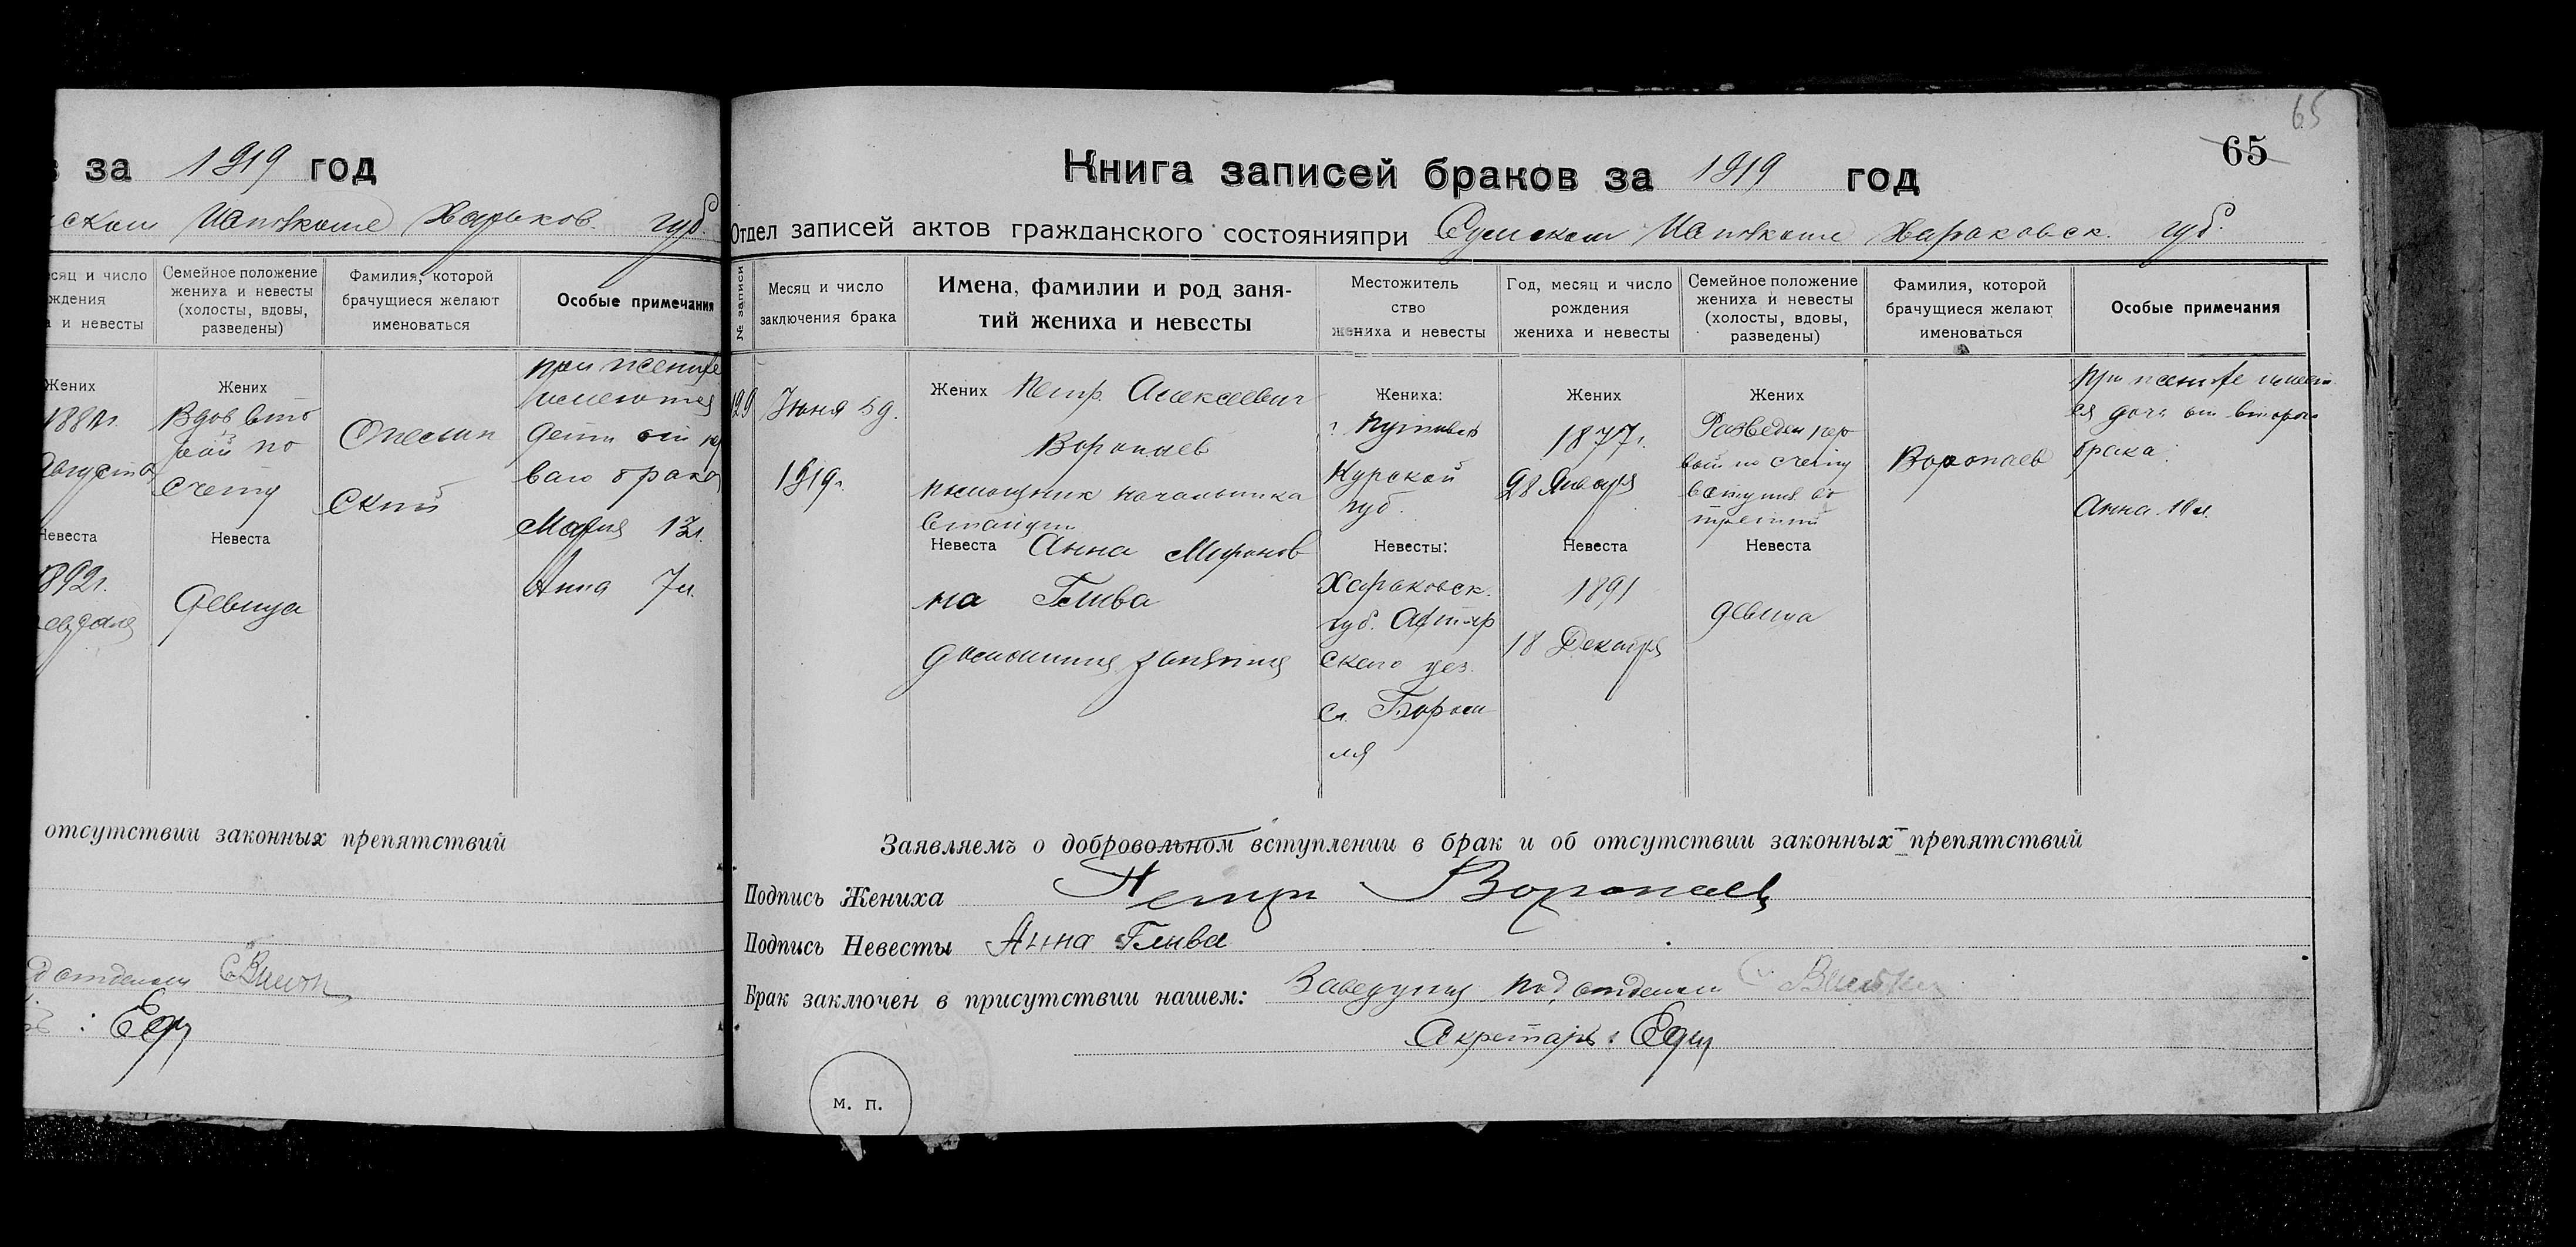 за 1919 год
ском Исполкоме Харьков. губ.
сяц и число
ждения
и невесты
Семейное положение
жениха и невесты
(холосты, вдовы,
разведены)
Фамилия, которой
брачущиеся желают
именоваться
Особые примечания
Жених
августа
Невеста
1892г.
Жених
Вдов вто
рой по
счету
Невеста
Девица
ский
при женихе
имеются
дети от пер
ваго брака
Мария 13л.
Анна 7л.
отсутствии законных препятствий
подотделом
65
65
Книга записей браков за 1919 год
Отдел записей актов гражданского состоянияпри Сумском Исполкоме Харьковск. губ.
№ записи
Месяц и число
заключения брака
Имена, фамилии и род заня-
тий жениха и невесты
Местожитель
ство
жениха и невесты
Год, месяц и число
рождения
жениха и невесты
Семейное положение
жениха и невесты
(холосты, вдовы,
разведены)
Фамилия, которой
брачущиеся желают
именоваться
Особые примечания
129
Июня 5д.
1919г.
Жених Петр Алексеевич
Воропаев
помощник начальника
станции
Невеста Анна Миронов
на Глива
домашния занятия
Жениха:
г. Путивль
Курской
губ.
Невесты:
Харьковск.
губ. Ахтыр
скаго уез.
сл. Бором
ля
Жених
1877г.
28 Января
Невеста
1891
18 Декабря
Жених
Разведен пер
вый по счету
вступил во
третий
Невеста
девица
Воропаев
При женихе имеет
ся дочь от второго
брака
Анна 10 л.
Заявляемъ о добровольном вступлении в брак и об отсутствии законных препятствий
Подпись Жениха Петръ Воропаевъ
Подпись Невесты Анна Глива
Брак заключен в присутствии нашем: Заведующ. подотделом
Секретарь:
м. п.